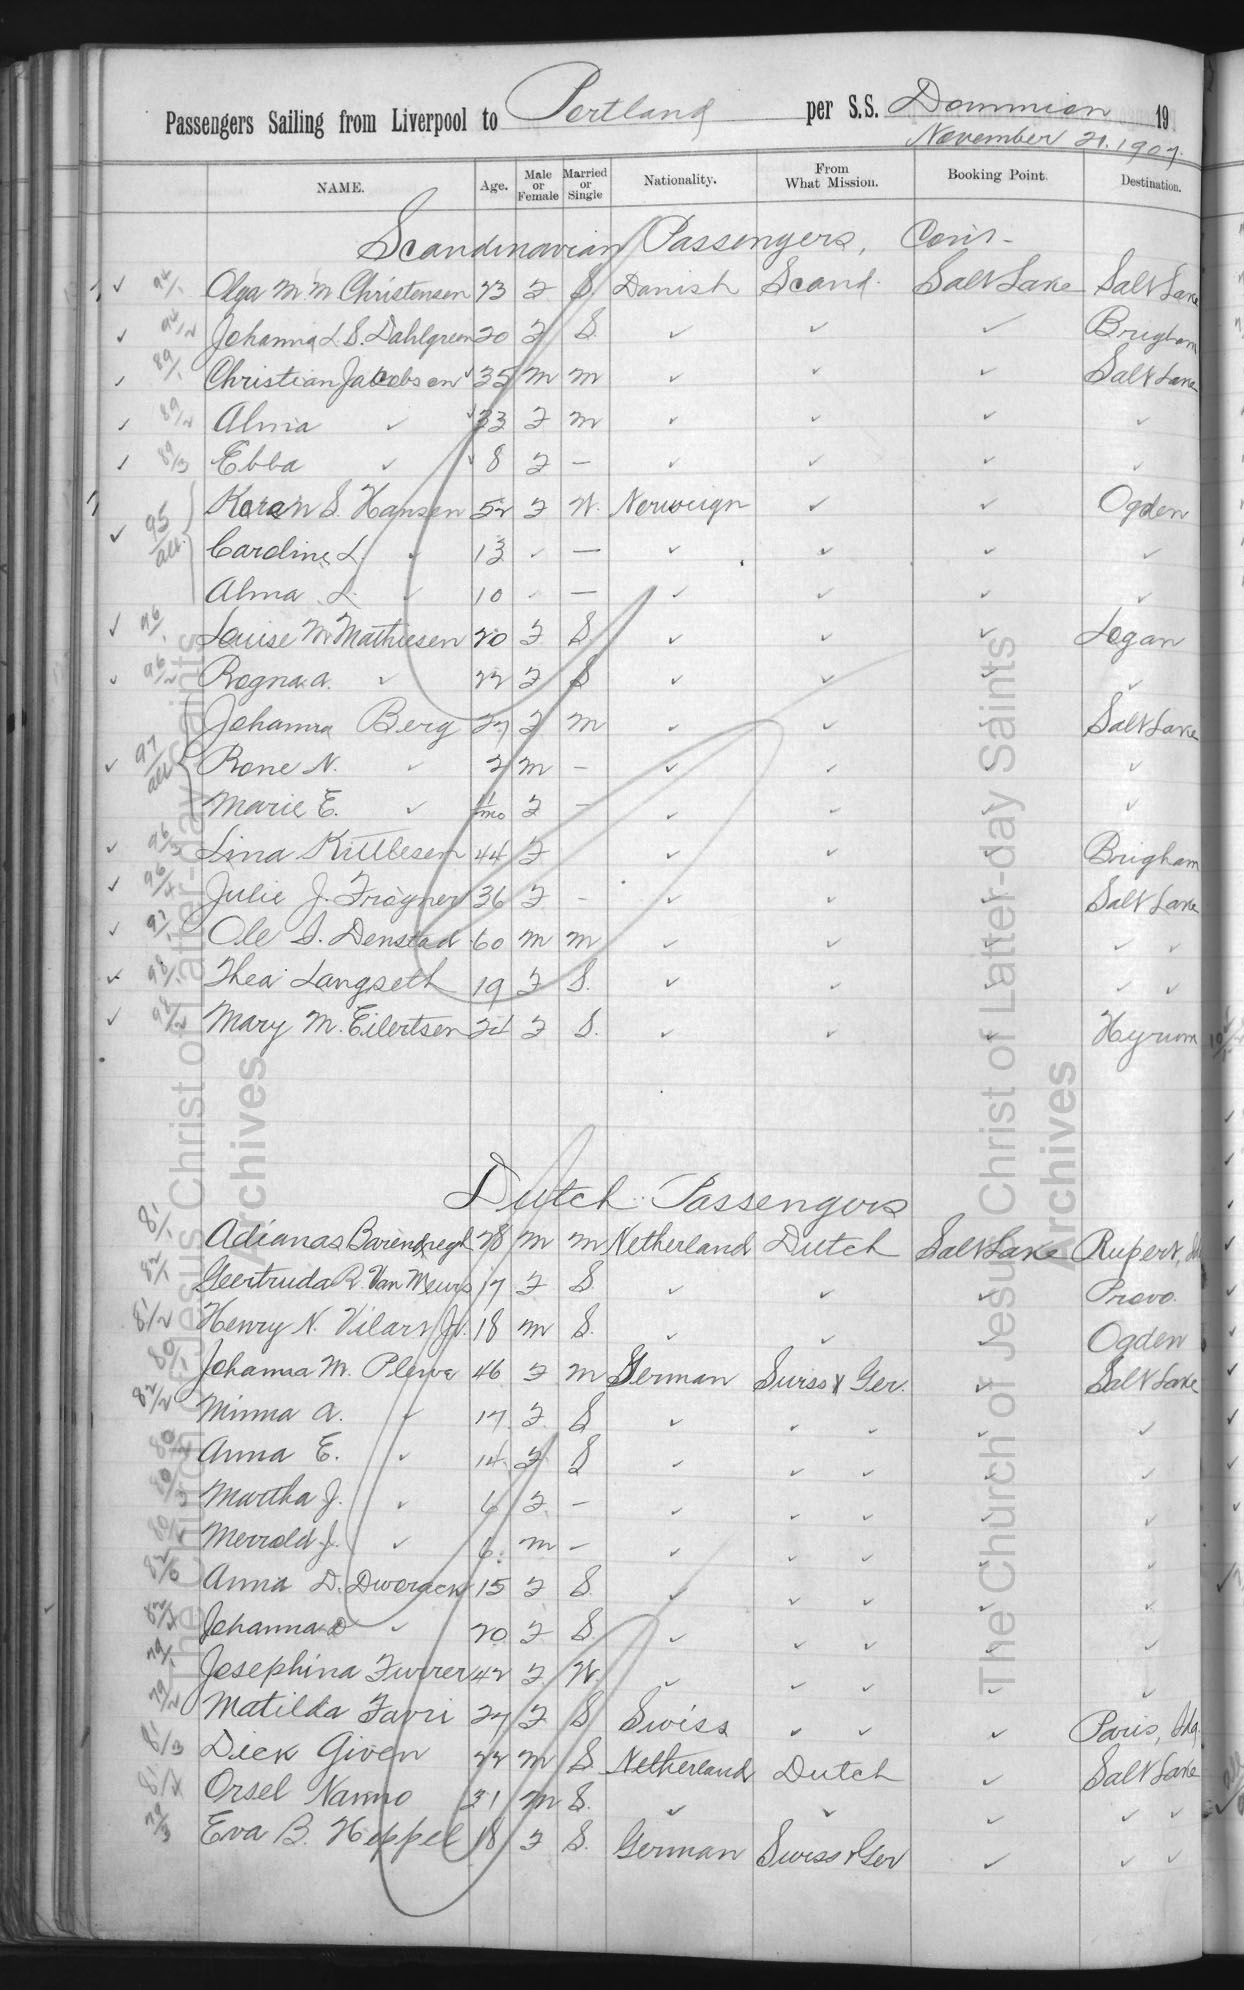 Passengers Sailing from Liverpool to Portland per S.S. Dominion 19
November 21. 1907.
NAME. Age. Male or Female Married or Single Nationality. From What Mission. Booking Point. Destination.
Scandinavian Passengers, Con't-
✓ 94/1 Olga M. M. Christensen 23 F S Danish Scand. Salt Lake Salt Lake
✓ 94/2 Johanna L. S. Dahlgreen 20 F S. ✓ ✓ ✓ Brigham
✓ 89/1 Christian Jacobsen 35 M M ✓ ✓ ✓ Salt Lake
✓ 89/2 Alma ✓ 33 F M ✓ ✓ ✓ ✓
✓ 89/3 Ebba ✓ 8 F — ✓ ✓ ✓ ✓
Karen S. Hansen 52 F W. Norweign ✓ ✓ Ogden
✓ 95/all Caroline L. ✓ 13 ✓ — ✓ ✓ ✓ ✓
Alma L. ✓ 10 ✓ — ✓ ✓ ✓ ✓
✓ 96/1 Louise M Mathiesen 20 F S. ✓ ✓ ✓ Logan
✓ 96/2 Rogna A. ✓ 22 F S ✓ ✓ ✓ ✓
Johanna Berg 27 F M ✓ ✓ ✓ Salt Lake
✓ 97/all Rone N. ✓ 2 M – ✓ ✓ ✓ ✓
Marie E. ✓ mo F – ✓ ✓ ✓ ✓
✓ 96/3 Lina Kittlesen 44 F ✓ ✓ ✓ Brigham
✓ 96/4 Julie J. Frogner 36 F – ✓ ✓ ✓ Salt Lake
✓ 97/1 Ole S. Denstad 60 M M ✓ ✓ ✓ ✓ ✓
✓ 98/1 Thea Langseth 19 F S. ✓ ✓ ✓ ✓ ✓
✓ 98/2 Mary M. Eilertsen 24 F S. ✓ ✓ ✓ Hyrum
Dutch Passengers
81/1 Adianas Barendregh 28 M M Netherland Dutch Salt Lake Rupert,
82/1 Geertruda R. Van Meurs 17 F S. ✓ ✓ ✓ Provo.
81/2 Henry N. Vilart Jr. 18 M S. ✓ ✓ ✓ Ogden
80/1 Johanna M. Plewe 46 F M German Swiss & Ger. ✓ Salt Lake
82/2 Minna A. ✓ 17 F S ✓ ✓ ✓ ✓ ✓
Anna E. ✓ 14 F S ✓ ✓ ✓ ✓ ✓
Martha J. ✓ 6 F – ✓ ✓ ✓ ✓ ✓
Merrold J. ✓ 6 M – ✓ ✓ ✓ ✓ ✓
Anna D. Dworack 15 F S. ✓ ✓ ✓ ✓ ✓
Johanna D ✓ 20 F S. ✓ ✓ ✓ ✓ ✓
79/1 Josephina Furrer 42 F W. ✓ ✓ ✓ ✓ ✓
79/2 Matilda Favri 27 F S Swiss ✓ ✓ ✓ Paris, Ida
81/3 Dick Given 22 M S. Netherland Dutch ✓ Salt Lake
Orsel Nanno 31 M S. ✓ ✓ ✓ ✓ ✓
79/3 Eva B. Heppel 18 F S. German Swiss & Ger ✓ ✓ ✓
The Church of Jesus Christ of Latter-day Saints
Archives
The Church of Jesus Christ of Latter-day Saints
Archives